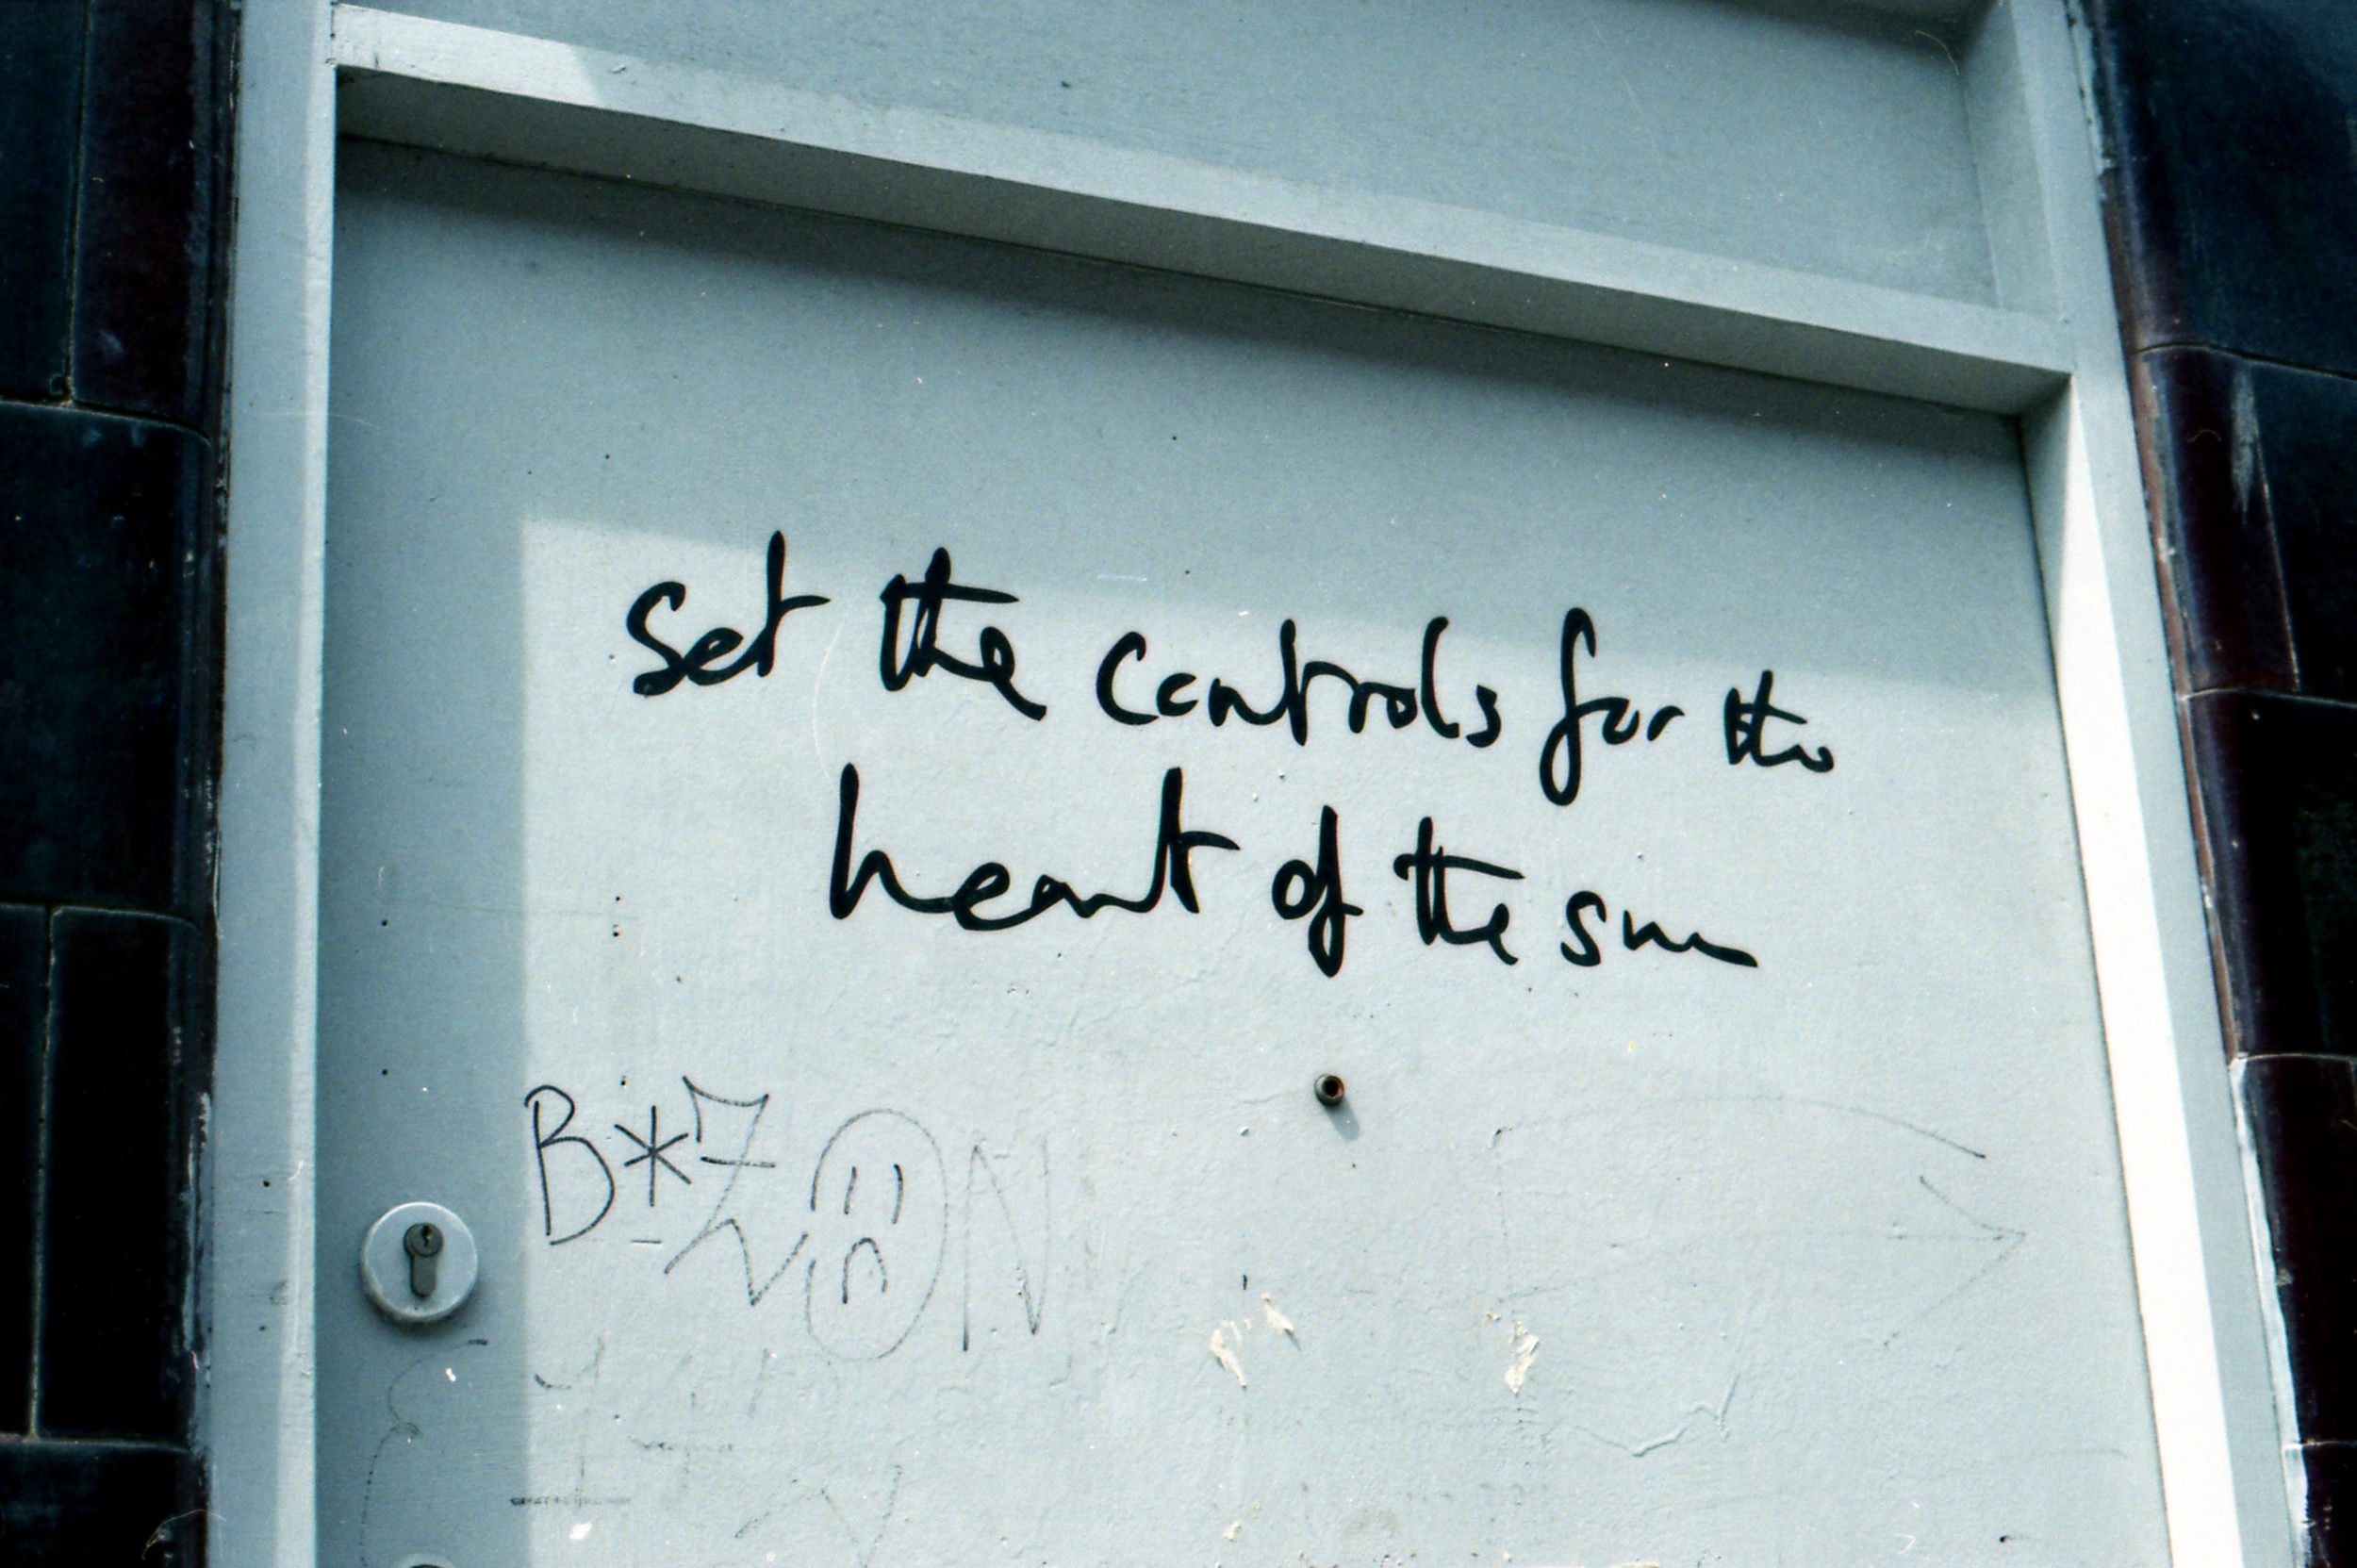 Set the controls for the
heart of the sun
B*Z